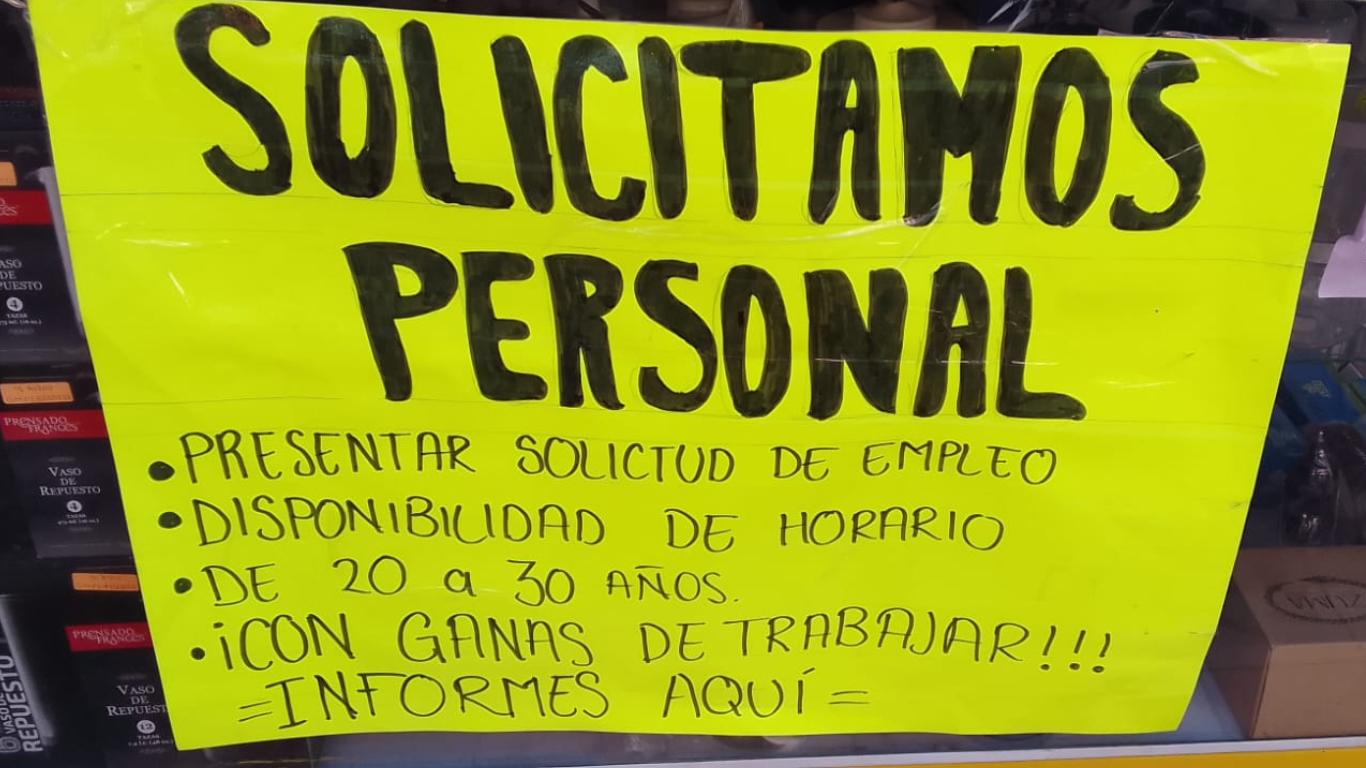 SOLICITAMOS
PERSONAL
• PRESENTAR SOLICTUD DE EMPLEO
• DISPONIBILIDAD DE HORARIO
• DE 20 a 30 AÑOS.
• ¡CON GANAS DE TRABAJAR!!!
=INFORMES AQUÍ=
VASO
DE
4
TAZAS
PRENSADO
FRANCÉS
VASO
DE
REPUESTO
4
PRENSADO
FRANCÉS
VASO
DE
12
VASO DE
REPUESTO